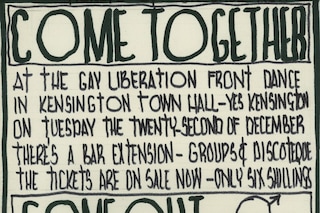 COME TOGETHER
AT THE GAY LIBERATION FRONT DANCE
IN KENSINGTON TOWN HALL-YES KENSINGTON
ON TUESDAY THE TWENTY-SECOND OF DECEMBER
THERE'S A BAR EXTENSION- GROUPS & DISCOTEQUE
THE TICKETS ARE ON SALE NOW -ONLY SIX SHILLINGS
COME OUT